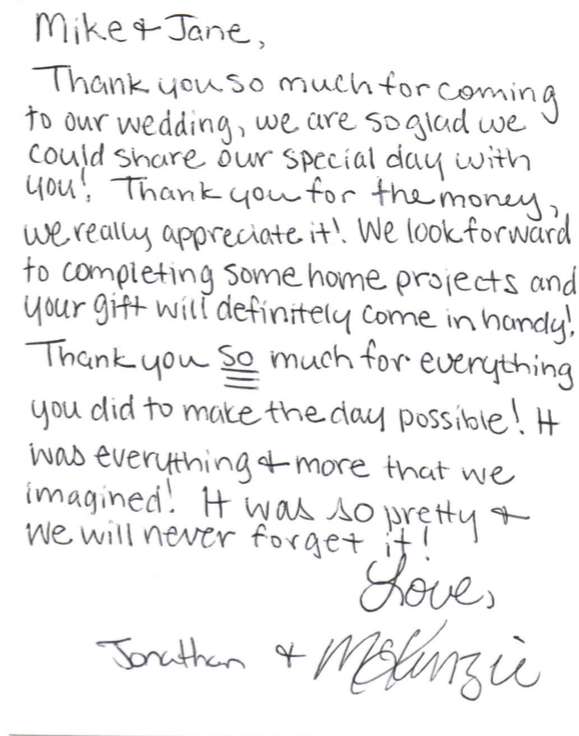 Mike & Jane,
Thank you so much for coming
to our wedding, we are so glad we
could share our special day with
you! Thank you for the money,
we really appreciate it! We look forward
to completing some home projects and
your gift will definitely come in handy!
Thank you so much for everything
you did to make the day possible! It
was everything & more that we
imagined! It was so pretty &
we will never forget it!
Love,
Jonathan & McKenzie